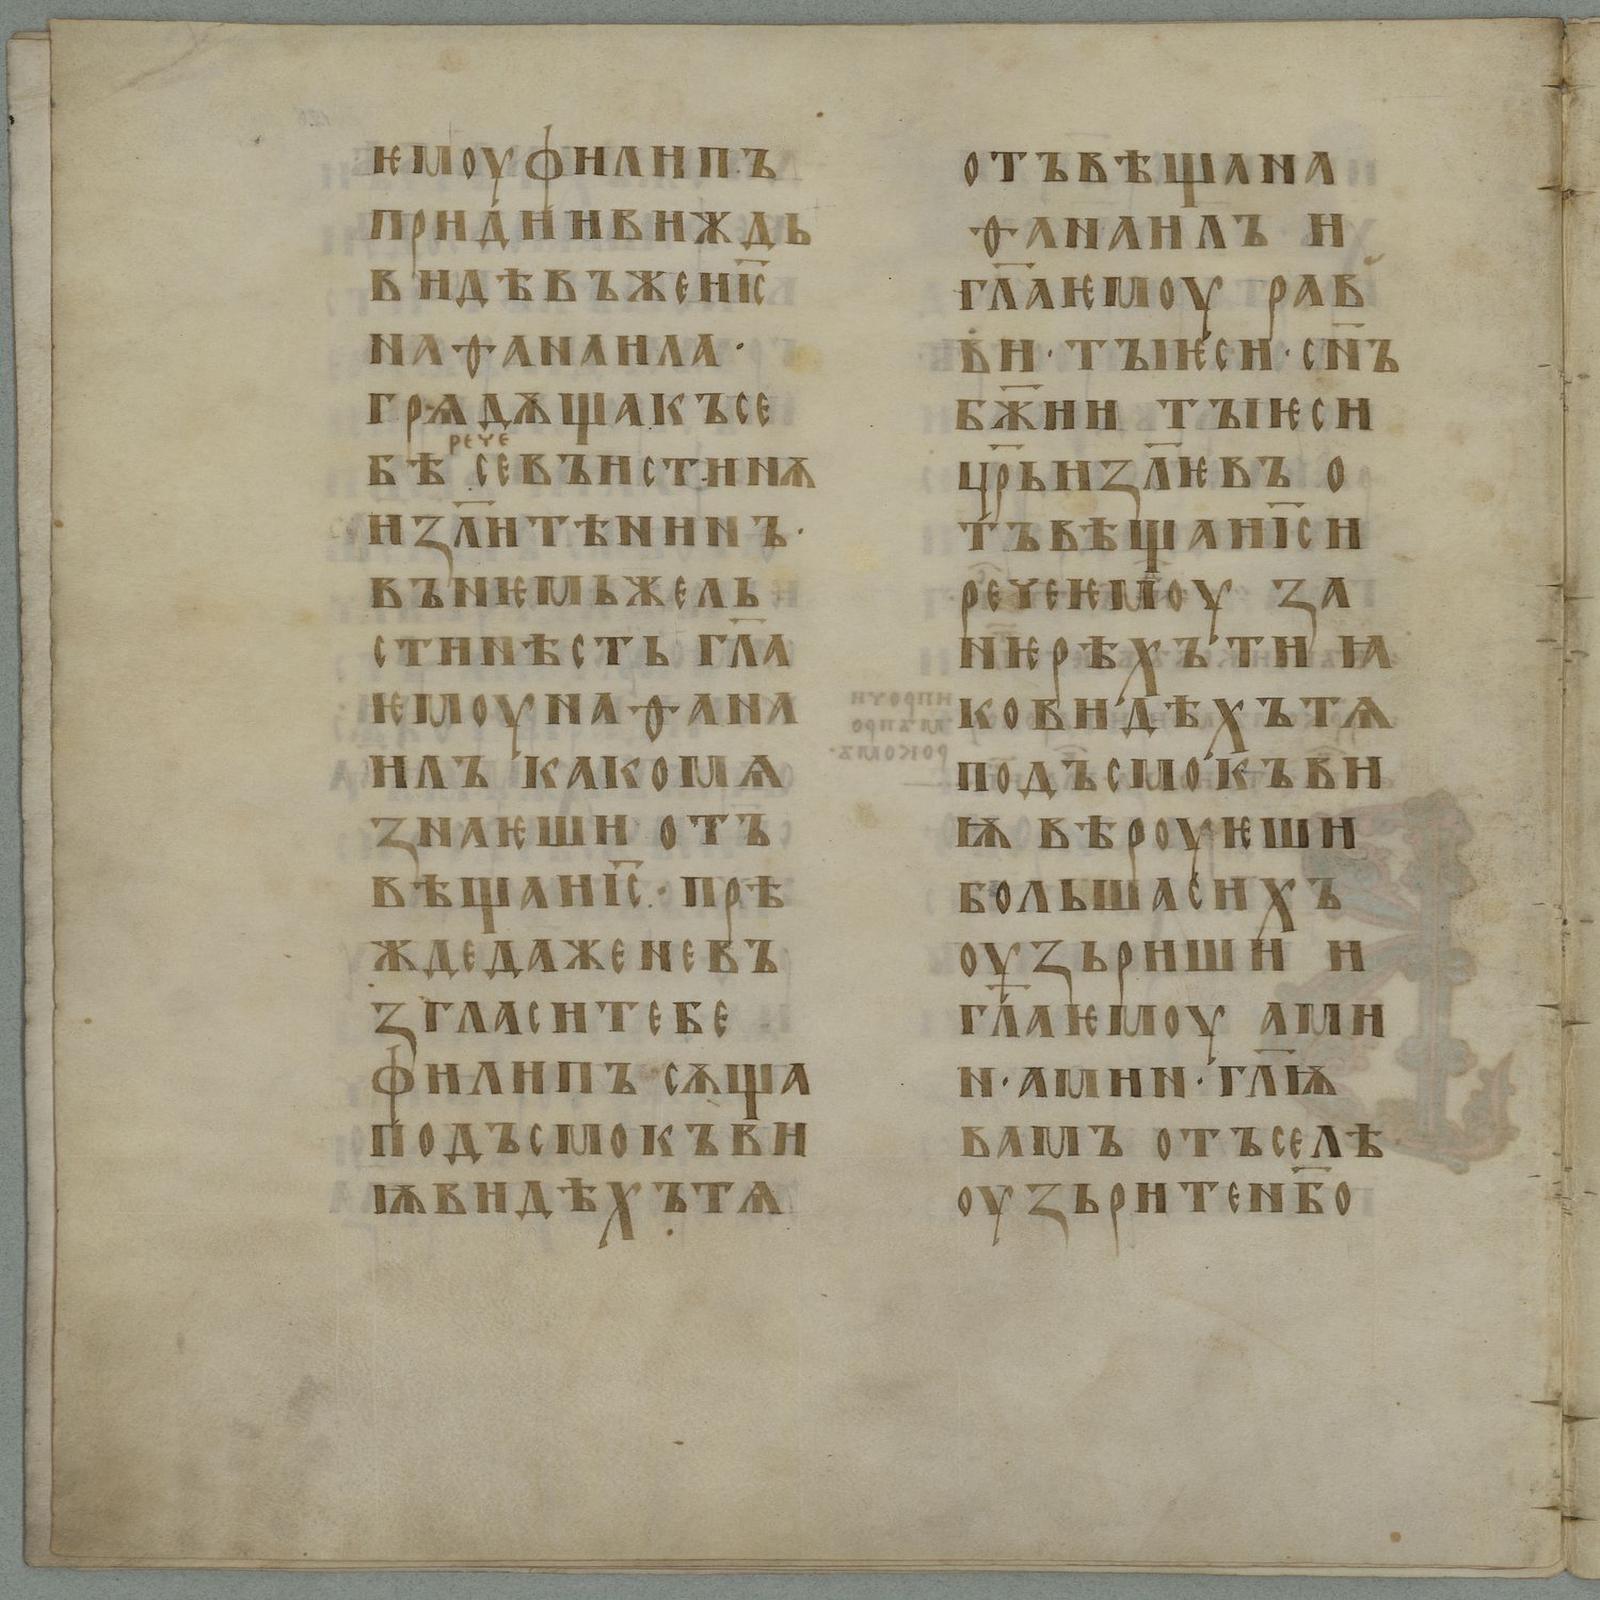 ѥмоуфилипъ
приди́ивиждь
видѣвъжеиі҃с
наѳанаила·
грѧдѫщакъсе
рече
бѣ севъистинѫ
из҃л҃итѣнинъ·
въньмьжель
стинѣсть гл҃а
ѥмоунаѳана
илъ какомѧ
знаѥши отъ
вѣщаиі҃с· прѣ
ждедаженевъ
згласитебе
филипъ сѫща
подъсмокъви
ѭвидѣхътѧ
отъвѣщана
ѳанаилъ и
гл҃аѥмоу рав
ви· тꙑѥси· сн҃ъ
бж҃ии тꙑѥси
цр҃ьизл҃ѥвъ о
тъвѣщаиі҃си
речеѥмоу за
нѥрѣхъти ꙗ
ковидѣхътѧ
подъсмокъви
ѭ вѣроуѥши
большасихъ
оузьриши и
гл҃аѥмоу ами
н·амин·гл҃ѭ
вамъ отъселѣ
оузьритен҃бо